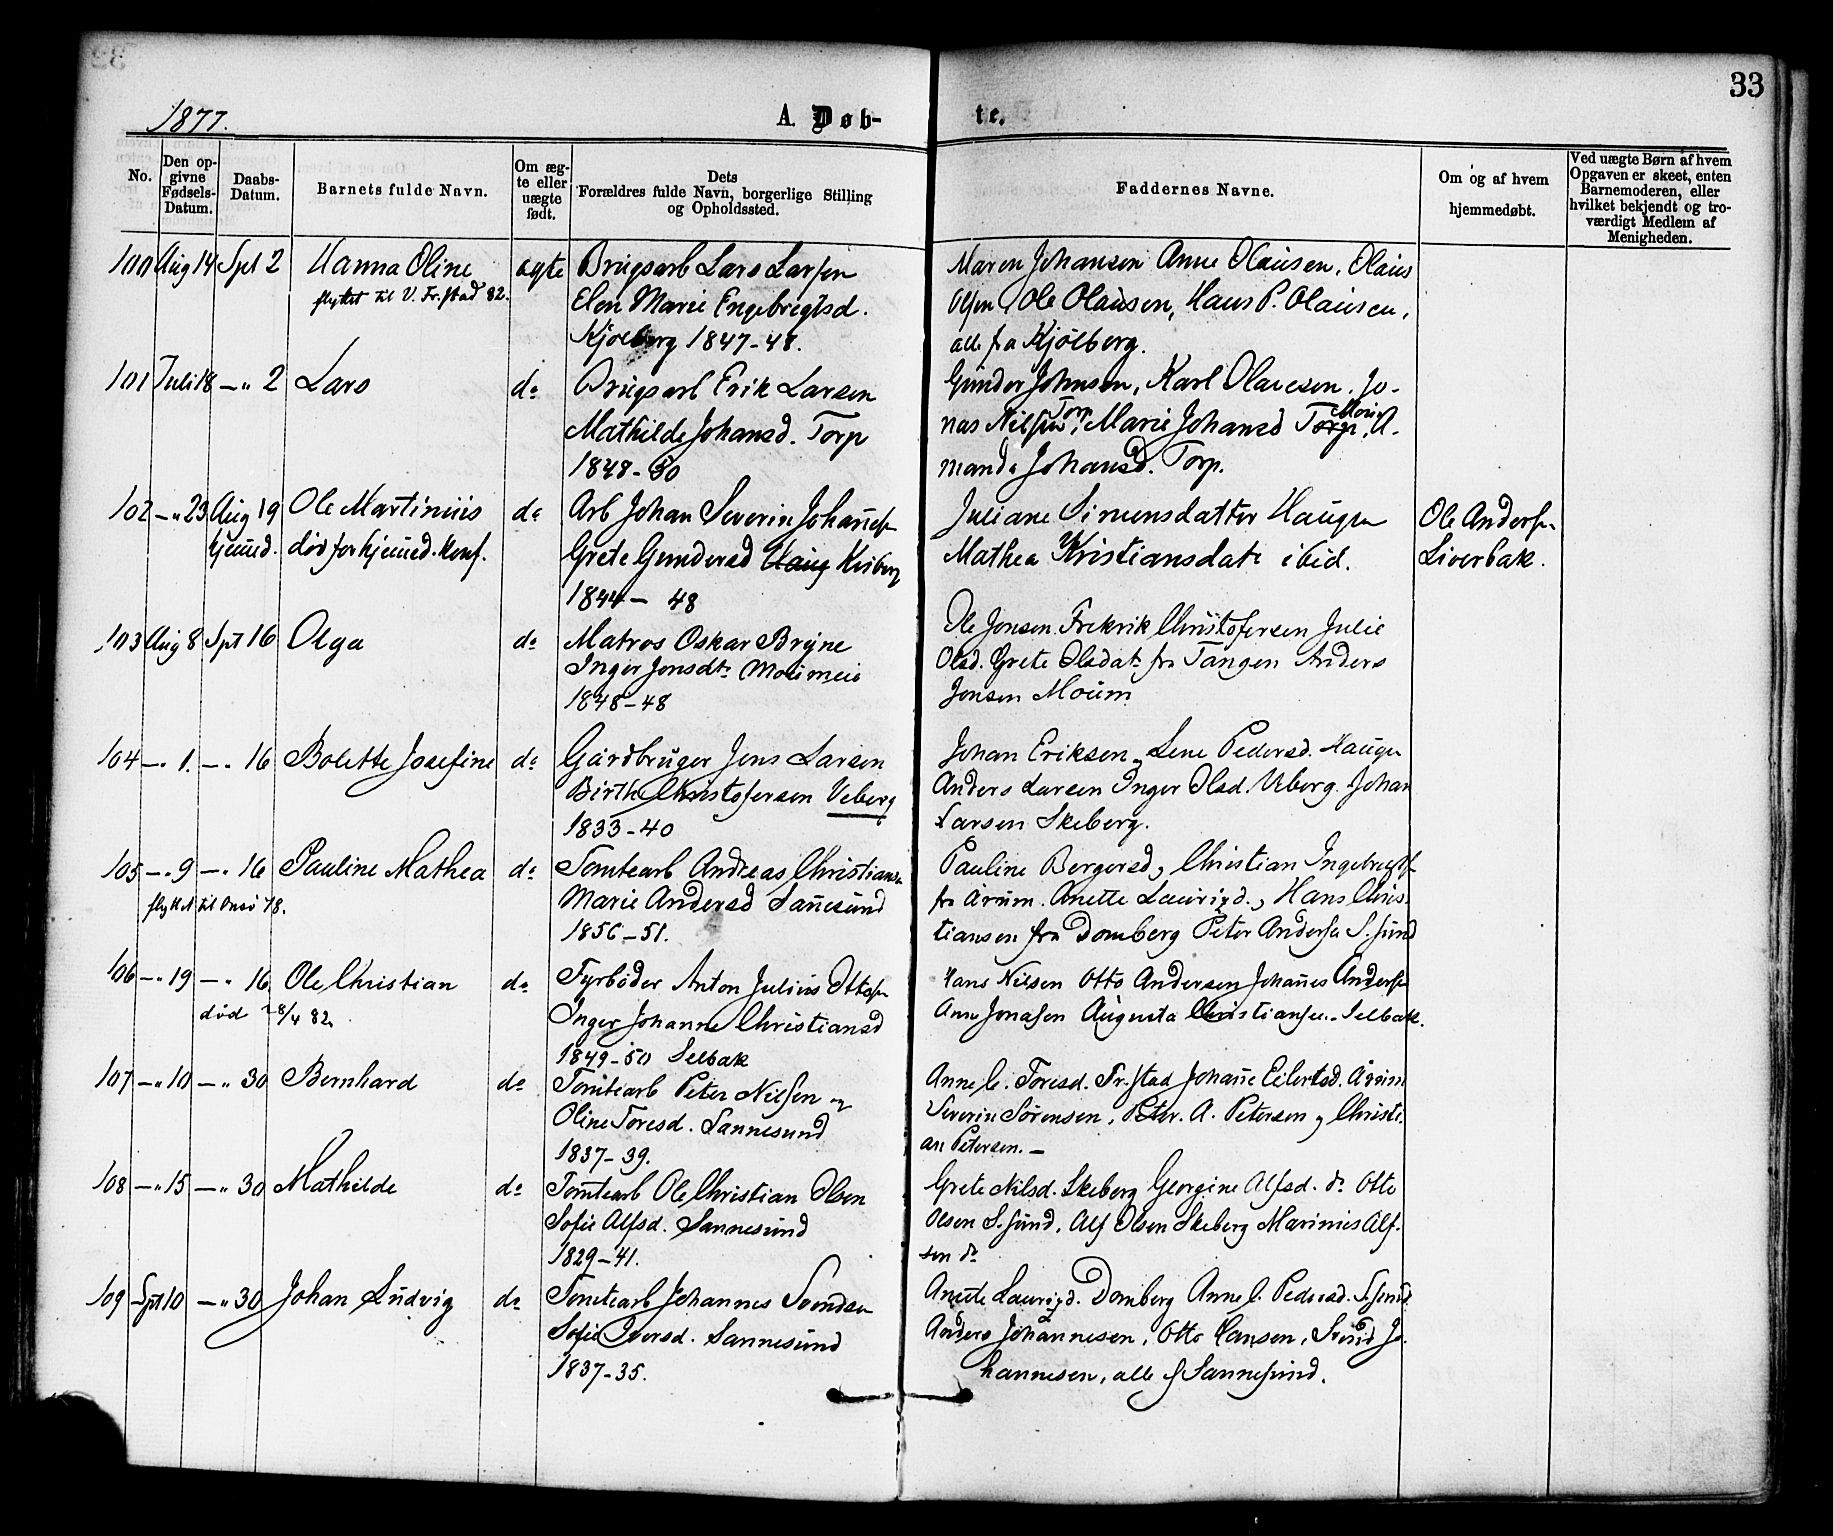 33
1877.
A. Døb-
te.
No.
Den op-
givne
Fødsels-
Datum.
Daabs-
Datum.
Barnets fulde Navn.
Om æg-
te eller
uægte
født.
Dets
Forældres fulde Navn, borgerlige Stilling
og Opholdssted.
Faddernes Navne.
Om og af hvem
hjemmedøbt.
Ved uægte Børn af hvem
Opgaven er skeet, enten
Barnemoderen, eller
hvilket bekjendt og tro-
værdigt Medlem af
Menigheden.
100 Aug 14 Spt 2 Hanna Oline ægte Brugsarb Lars Larsen
flyttet til V. Fr.stad 82. Elen Marie Engebregtsd.
Kjølberg 1847-48.
Maren Johansen Anne Olausen, Olaus
Olsen, Ole Olausen, Hans P. Olausen,
alle fra Kjølberg.
101 Juli 18 —„ 2 Lars do Brugsarb Erik Larsen
Mathilde Johansd. Torp
1848-50
Gunder Johnsen, Karl Olavesen, Jo-
nas Nilsen Torp, Marie Johansd Torp, A-
manda Johansd. Torp.
102 —„ 23 Aug 19 Ole Martinius do Arb Johan Severin Johannesn
hjemmed. død før hjemmed. konf. Grete Gundersd Haug Kisberg
1844 — 48
Juliane Simensdatter Haugen
Mathea Kristiansdatr ibid.
Ole Andersn
Liverbak.
103 Aug 8 Spt 16 Olga do Matros Oskar Bryne
Inger Jonsdtr
1848-48
Ole Jonsen Frekrik Christofersen Julie
Olsd. Grete Olsdatr fra Tangen Anders
Jensen Moum
104 —„ 1. —„ 16 Bolette Josefine do Gårdbruger Jens Larsen
Birthe Christofersen Veberg
1833-40
Johan Eriksen, Lene Pedersd. Haugen
Anders Larsen Inger Olsd. Veberg. Johan
Larsen Skeberg.
105 —„ 9 —„ 16 Pauline Mathea do Tomtearb Andreas Christiansn
flyttet til Onsø 78. Marie Andersd Sannesund
1856-51.
Pauline Bergersd, Christian Ingebretsn
fra Årum. Anette Lauridsd., Hans Chris-
tiansen fra Domberg Peter Andersen S.sund
106 —„ 19 —„ 16 Ole Christian do Fyrbøder Anton Julius Ottosn
død 28/4 82. Inger Johanne Christiansd
1849-50 Selbak
Hans Nilsen Otto Andersen Johannes Andersn
Anne Jonasen Augusta Christiansen. Selbak.
107 —„ 10 —„ 30 Bernhard do Tomtearb Peter Nilsen og
Oline Toresd. Sannesund
1837-39.
Anne C. Toresd. Fr.stad Johanne Eilertsd. Årum
Severin Sørensen, Peter A. Petersen, Christi-
an Petersen. —
108 —„ 15 —„ 30 Mathilde do Tomtearb Ole Christian Olsen
Sofie Alfsd. Sannesund
1829-41.
Grete Nilsd. Skeberg Georgine Alfsd. do Otto
Olsen S.sund, Alf Olsen Skeberg Marinius Alf-
sen do
109 Spt 10 —„ 30 Johan Ludvig do Tomtearb Johannes Svendsen
Sofie Iversd. Sannesund
1837-35.
Anette Lauridsd. Domberg Anne C. Pedersd. S.sund
Anders Johannesen, Otto Hansen, Svend Jo-
hannesen, alle f Sannesund.